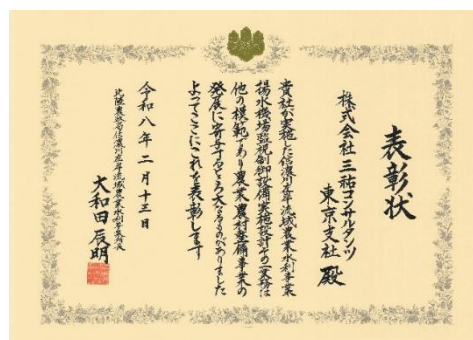 表彰状
株式会社三祐コンサルタンツ
東京支社 殿
貴社が実施した信濃川左岸流域農業水利事業
揚水機場監視制御設備実施設計その業務は
他の模範であり農業農村整備事業の
発展に寄与するところ大なるものがありました
よってここにこれを表彰します
令和八年二月十三日
北陸農政局信濃川左岸流域農業水利事業所長
大和田辰明